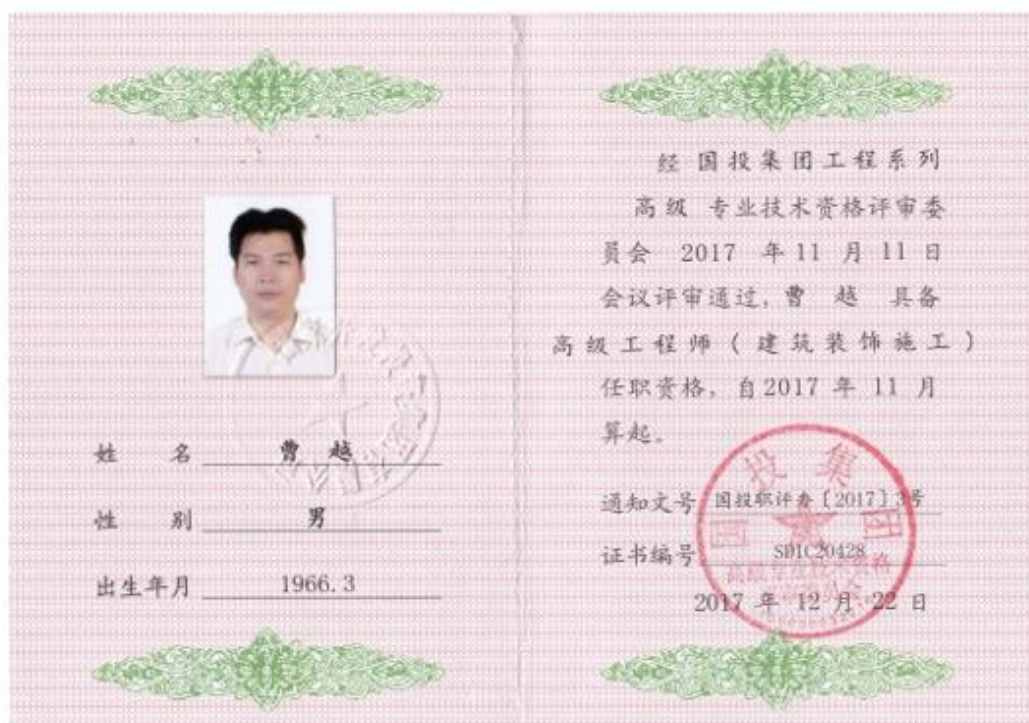 姓 名 曹 越
性 别 男
出生年月 1966.3
经 国投集团工程系列
高级 专业技术资格评审委
员会 2017 年 11 月 11 日
会议评审通过，曹 越 具备
高级工程师（建筑装饰施工）
任职资格，自2017 年 11 月
算起。
通知文号 国投职评委〔2017〕3号
证书编号 SDIC20428
2017 年 12 月 22 日
国投集团
高级专业技术资格